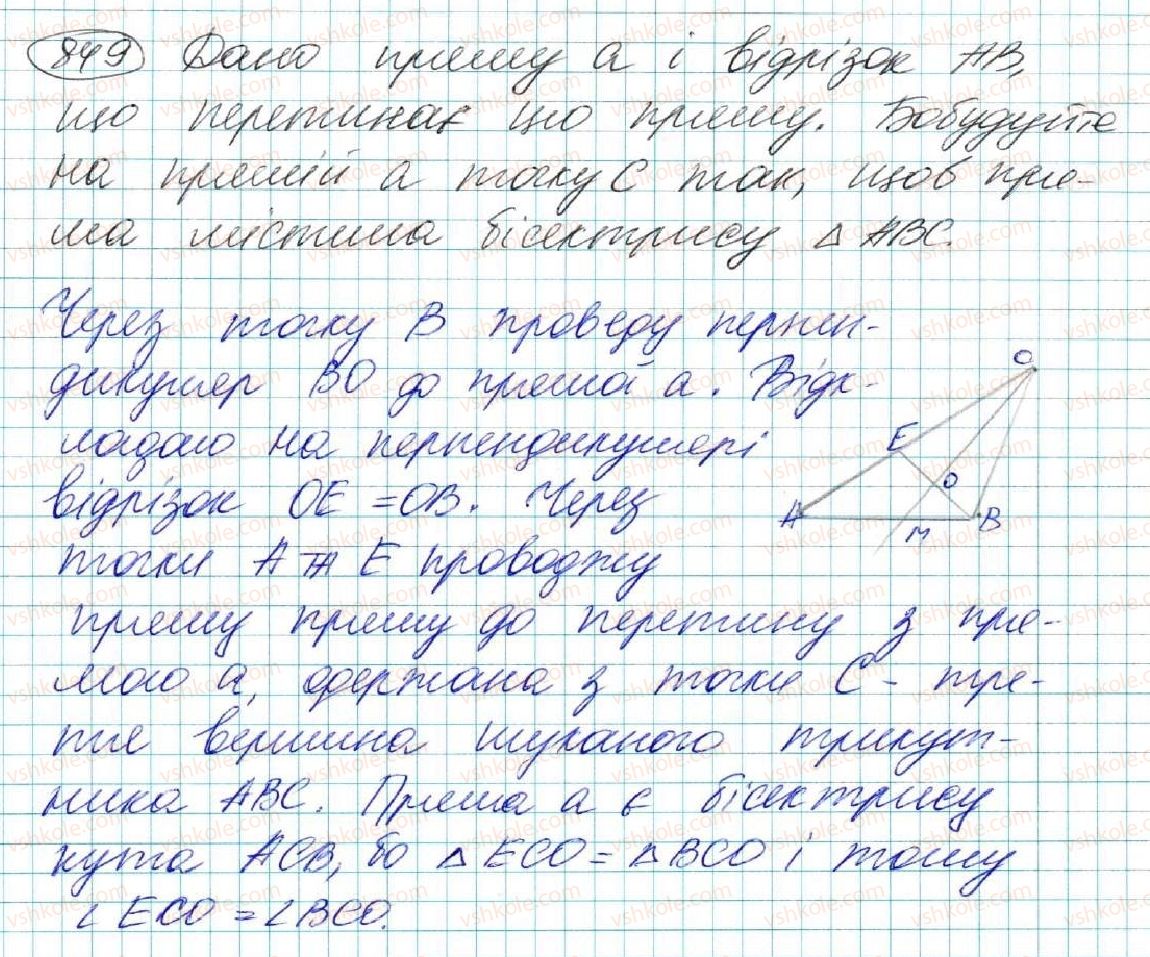 849 Дано пряму а і відрізок АВ,
що перетинає цю пряму. Бобудуйте
на прямій а точку С так, щоб пря-
ма містила бісектрису △ АВС.
Через точку В проведу перпен-
дикуляр ВО до прямої а. Відк-
ладаю на перпендикулярі
відрізок ОЕ = ОВ. Через
точки А та Е проводжу
пряму пряму до перетину з пря-
мою а, одержана з точки С - тре-
тя вершина шуканого трикут-
ника АВС. Пряма а є бісектрису
кута АСВ, бо △ ЕСО = △ ВСО і тому
∠ ЕСО = ∠ ВСО.
С
Е
О
А
М
В